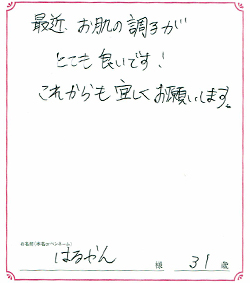 最近、お肌の調子が
とても良いです!
これからも宜しくお願いします。
お名前(本名orペンネーム)
はるやん 様 31歳